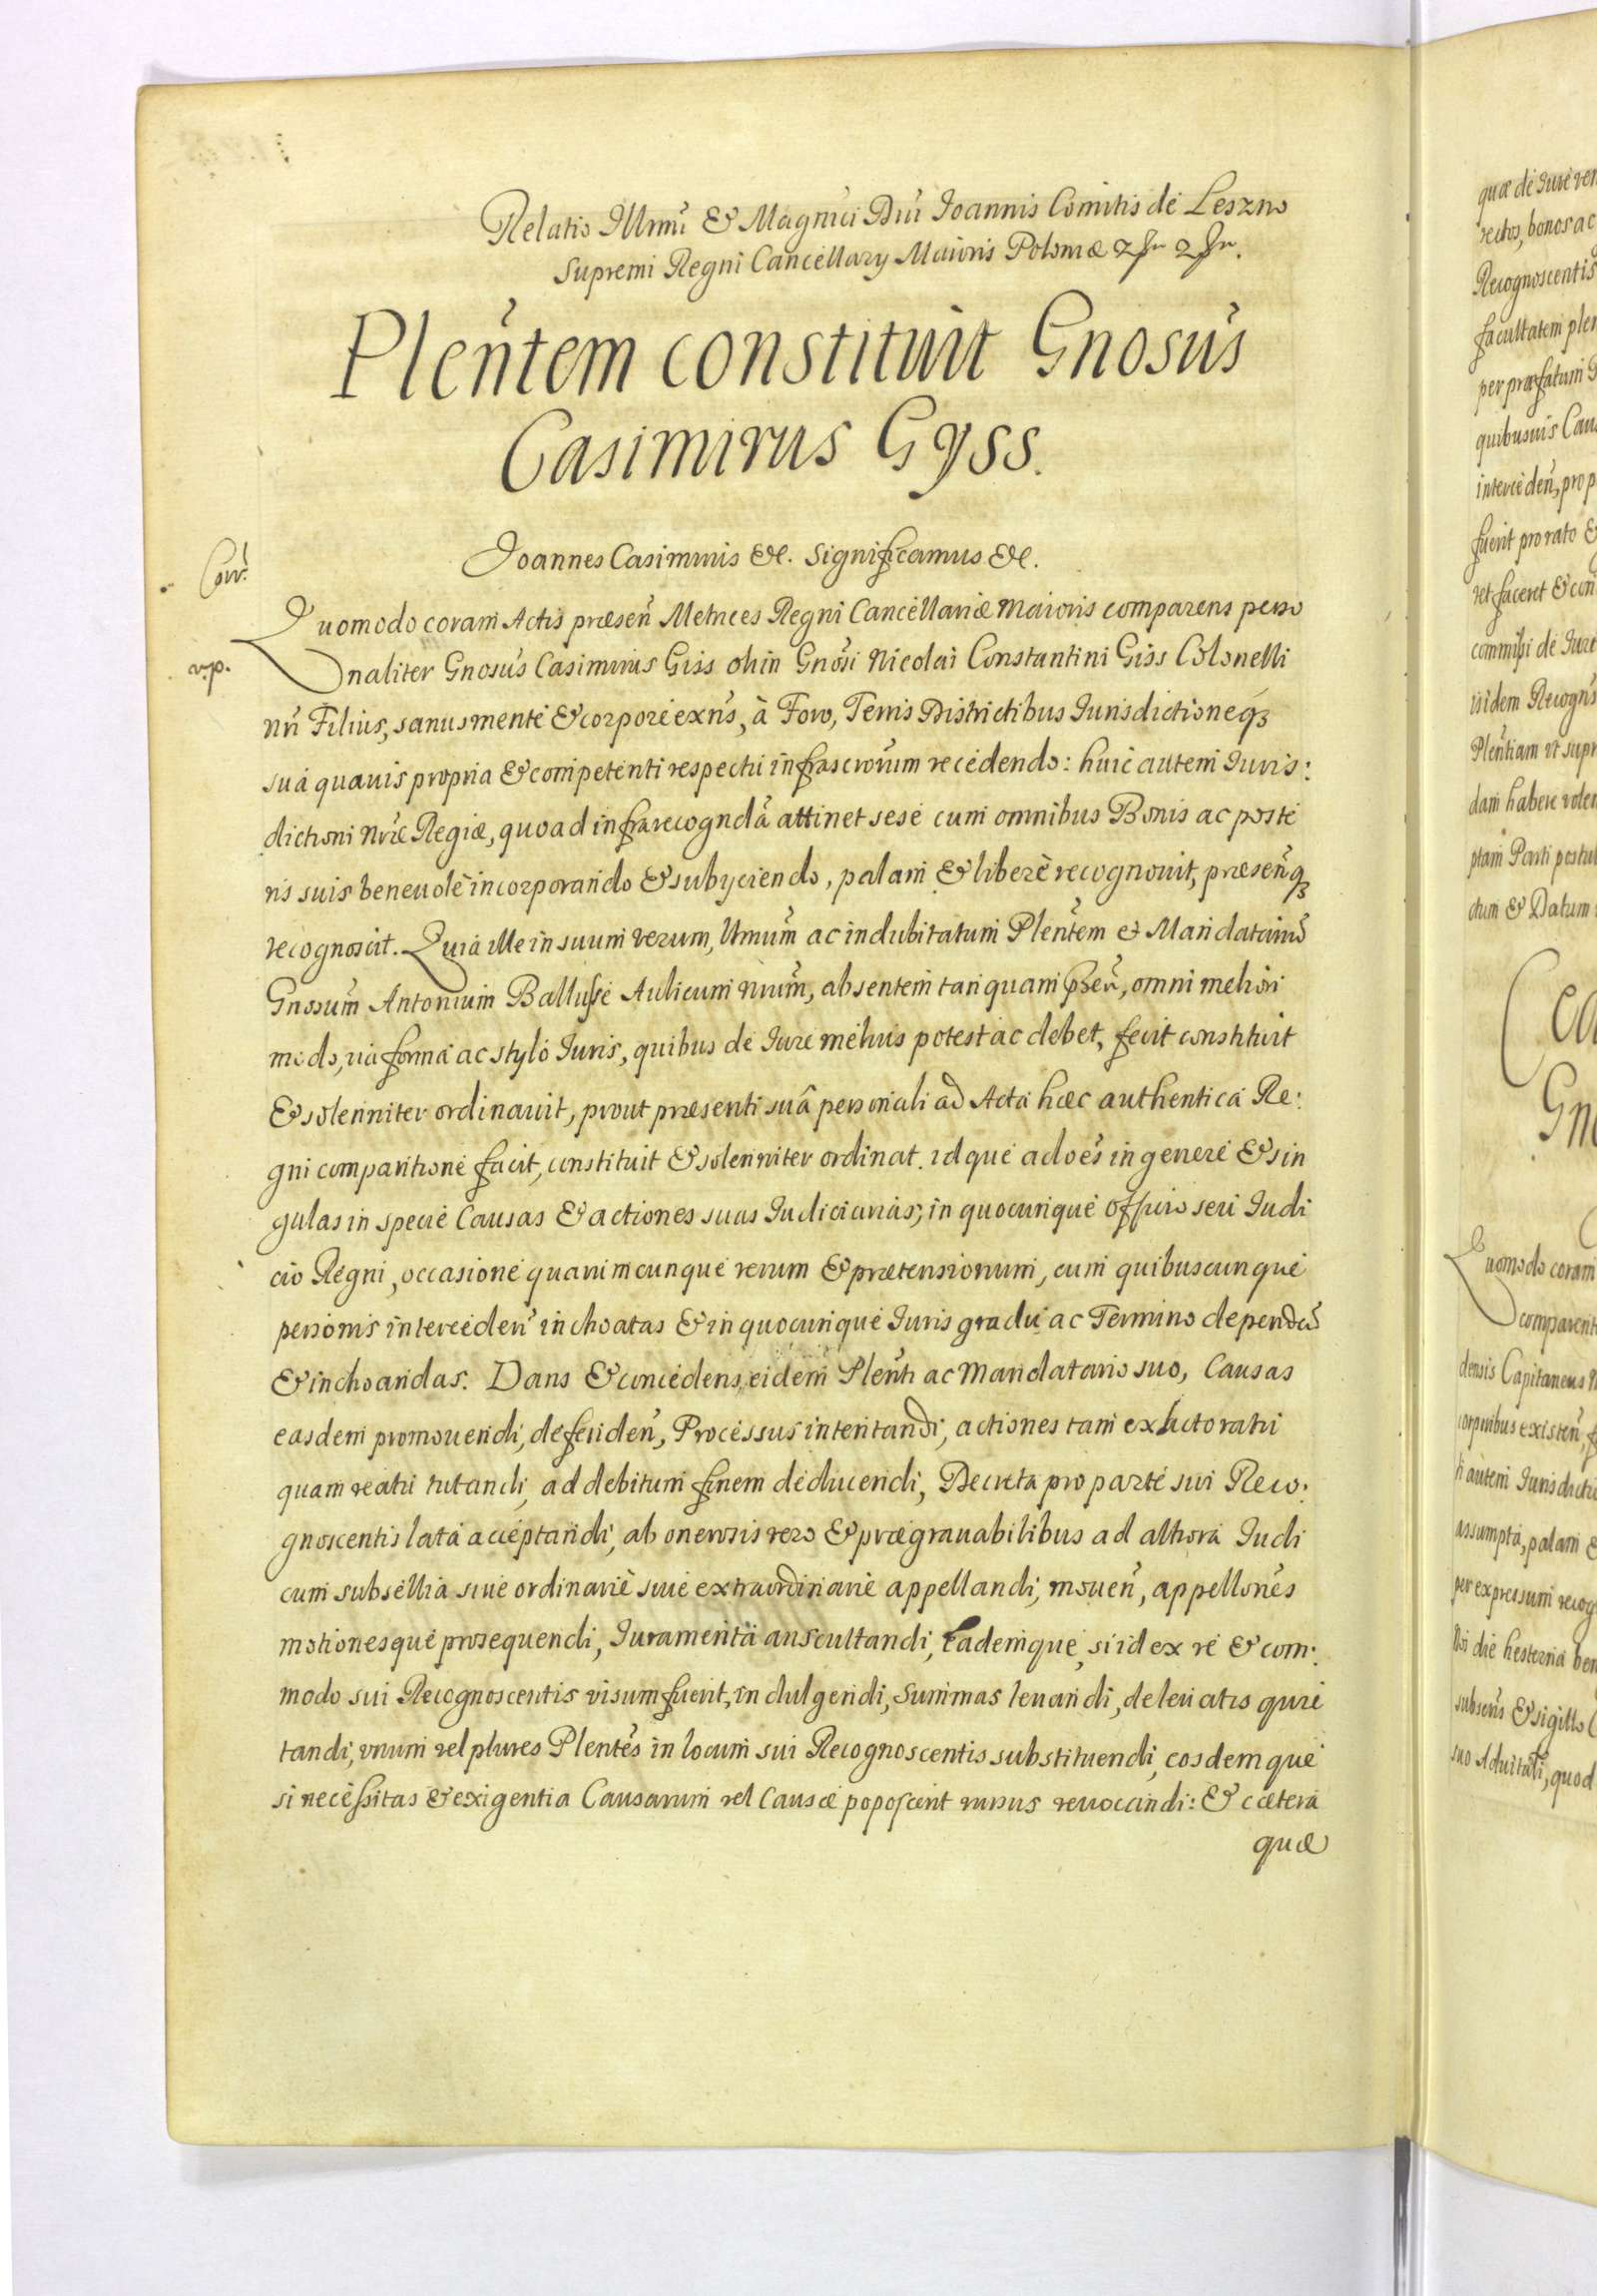 Relatio Illrmi & Magnici Dni Ioannis Comitis de Leszno
Supremi Regni Cancellary Maioris Poloniæ
Plentem constituit Gnosus
Casimirus Gyss.
Corr.
Ioannes Casimirus &c. Significamus &c.
Quomodo coram Actis præsen Metrices Regni Cancellariæ Maioris comparens perso
v.p.
naliter Gnosus Casimirus Giss olim Gnosi Nicolai Constantini Giss Colonelli
nri Filius, sanus mente & corpore exns, à Foro, Terris Districtibus Iurisdictioneq3
suà quauis propria & competenti respectu infrascrorum recedendo: huic autem Iuris:
dictioni nræ Regiæ, quoad infrarecogndã attinet sese cum omnibus Bonis ac poste
ris suis beneuolè incorporando & subyciendo, palam & liberè recognouit, præsenq3
recognoscit. Quia ille in suum verum, ltmum ac indubitatum Plentem et Mandatarium
Gnosum Antonium Balluse Aulicum nrum, absentem tanquam psen, omni meliori
modo, via forma ac stylo Iuris, quibus de Iure melius potest ac debet, fecit constituit
& solenniter ordinauit, prout præsenti suâ personali ad Acta hæc authentica Re:
gni comparitione facit, constituit & solenniter ordinat. idque ad oes in genere & sin
gulas in specie Causas & actiones suas Iudiciarias; in quocunque officio seu Iudi
cio Regni, occasione quarumcunque rerum & prætensionum, cum quibuscunque
personis interceden inchoatas & in quocunque Iuris gradu ac Termino penden
& inchoandas. Dans & concedens eidem Plenti ac Mandatario suo, Causas
easdem promouendi, defenden, Processus intentandi, actiones tam ex Actoratu
quam reatu tutandi, ad debitum finem deducendi, Decreta pro parte sui Reco:
gnoscentis lata acceptandi, ab onerosis vero & prægrauabilibus ad altiora Iudi
cum subsellia siue ordinariè siue extraordinariè appellandi, mouen, appellones
motionesque prosequendi, Iuramenta auscultandi, eademque, si id ex re & com:
modo sui Recognoscentis visum fuerit, indulgendi, Summas leuandi, de leuatis quie
tandi, vnum vel plures Plentes in locum sui Recognoscentis substituendi, eosdemque
si necessitas & exigentia Causarum vel Causæ poposcerit rursus reuocandi: & cætera
quæ
quæ de Iure ver
rectos, bonos ac
Recognoscentis
facultatem plen
per præfatum
quibusuis Cau
interceden, pro p
fuerit pro rato &
ret faceret & con
commissi de Iure
isidem Recogns
Plentiam vt supr
dam habere volen
ptam Parti postul
ctum & Datum
Gn
Quomodo coram
comparent
densis Capitaneus
corporibus existen,
ti autem Iurisdicti
assumpta, palam &
per expressum recog
die hesterna
subscris & sigillo
suo quod